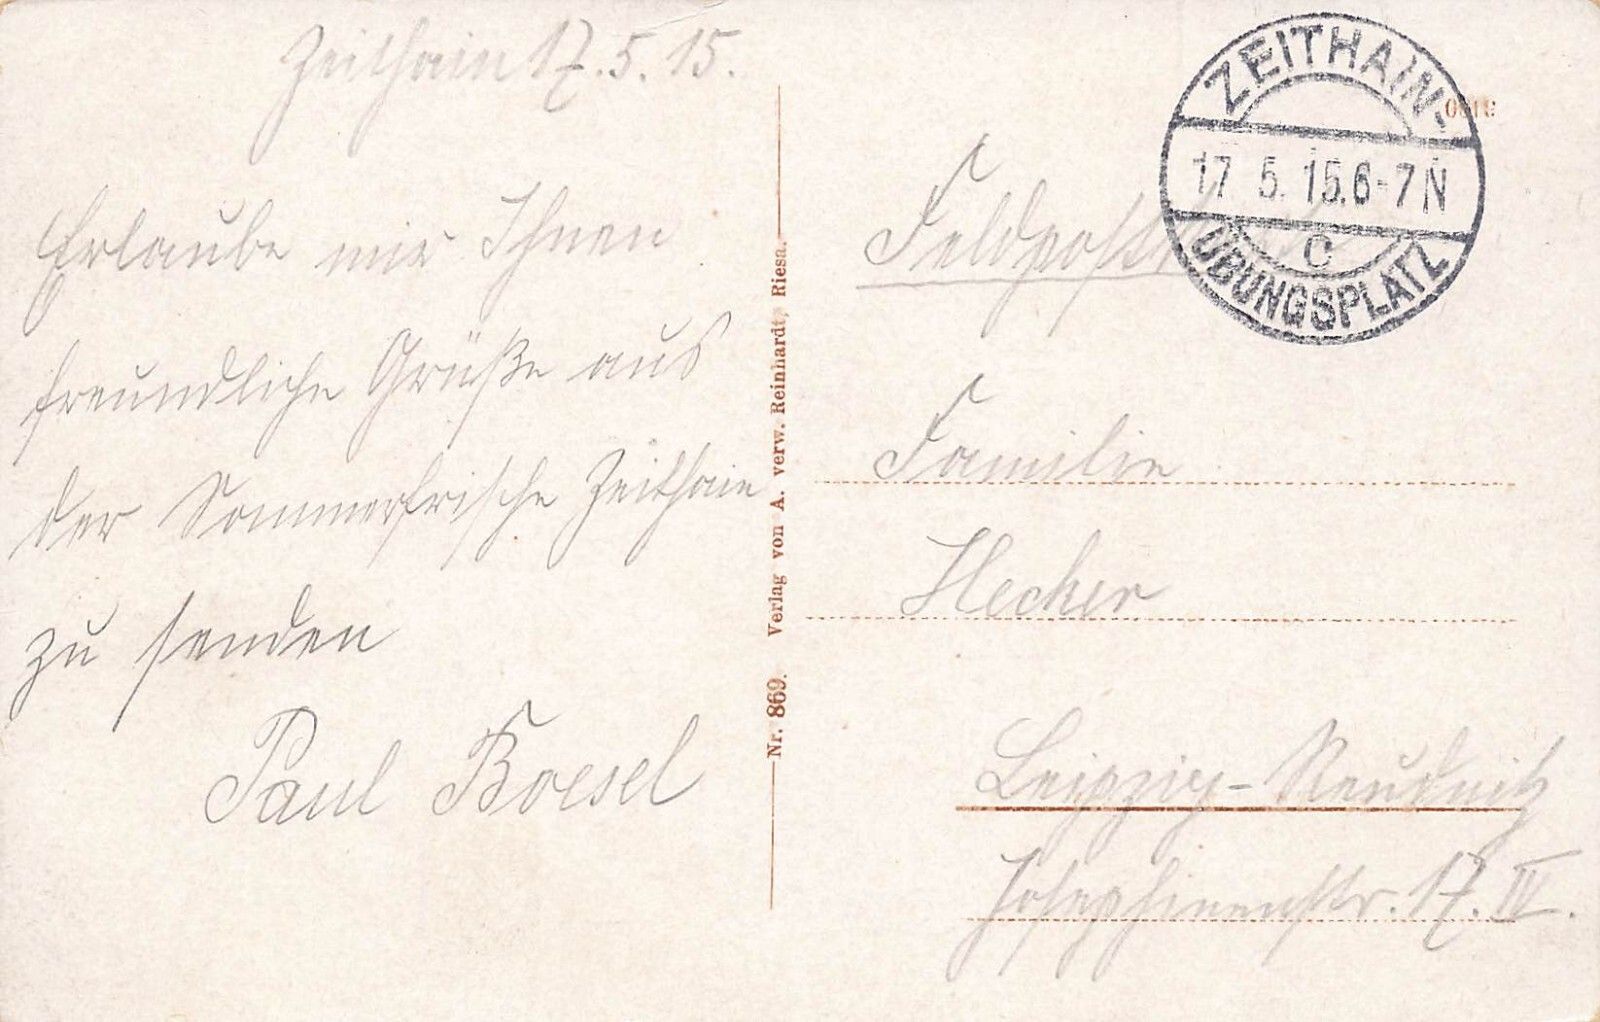 Zeithain 17.5.15.
Erlaube mir Ihnen
freundliche Grüße aus
der Sommerfrische Zeithain
zu senden
Paul Boesel
Nr. 869. Verlag von A. verw. Reinhardt, Riesa.
ZEITHAIN-
17 5. 15. 6-7 N
C
ÜBUNGSPLATZ
Feldpost
Familie
Hecker
Leipzig-Reudnitz
Josephinenstr. 17. III.